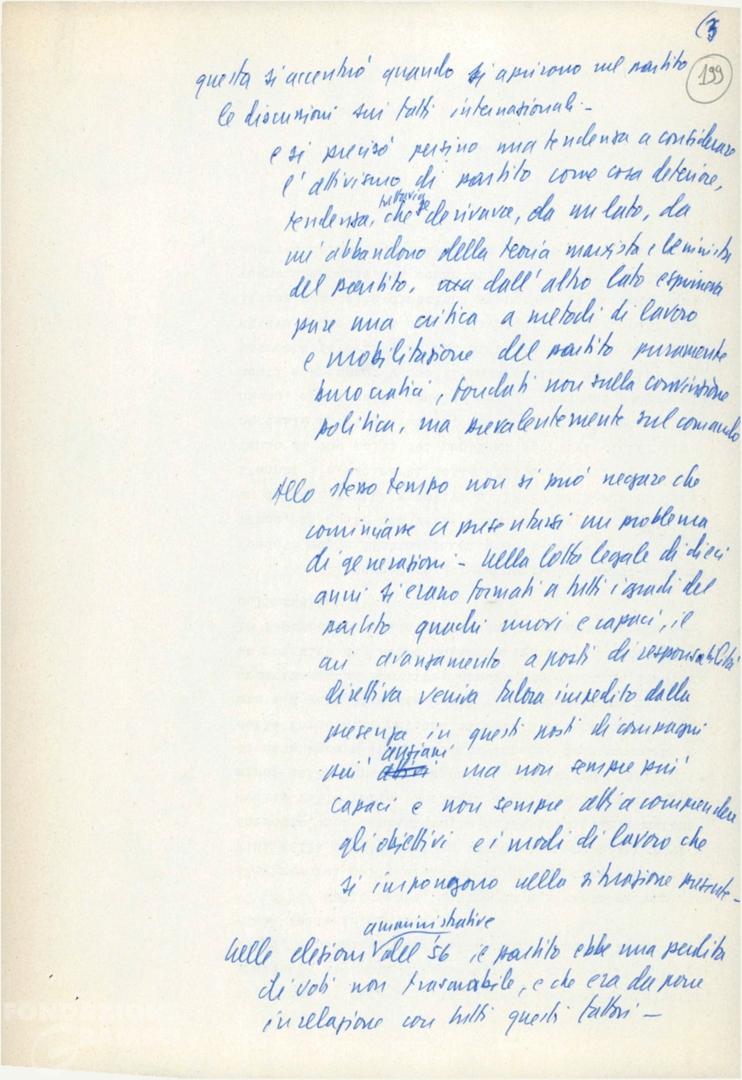 (3
199
questa si accentuò quando si aprirono nel partito
le discussioni sui fatti internazionali -
e si precisò persino una tendenza a considerare
l'attivismo di partito come cosa deteriore,
tuttavia
tendenza, che derivava, da un lato, da
un'abbandono della teoria marxista e leninista
del partito, ma dall'altro lato esprimeva
pure una critica a metodi di lavoro
e mobilitazione del partito puramente
burocratici, fondati non sulla convinzione
politica, ma prevalentemente sul comando
Allo stesso tempo non si può negare che
cominciasse a presentarsi un problema
di generazioni - Nella lotta legale di dieci
anni si erano formati a tutti i gradi del
partito quadri nuovi e capaci, il
cui avanzamento a posti di responsabilità
direttiva veniva talora impedito dalla
presenza in questi posti di compagni
anziani
più ma non sempre più
capaci e non sempre atti a comprendere
gli obiettivi e i modi di lavoro che
si impongono nella situazione presente -
amministrative
Nelle elezioni del '56 il partito ebbe una perdita
di voti non trascurabile, e che era da porre
in relazione con tutti questi fattori -
FONDAZIONE